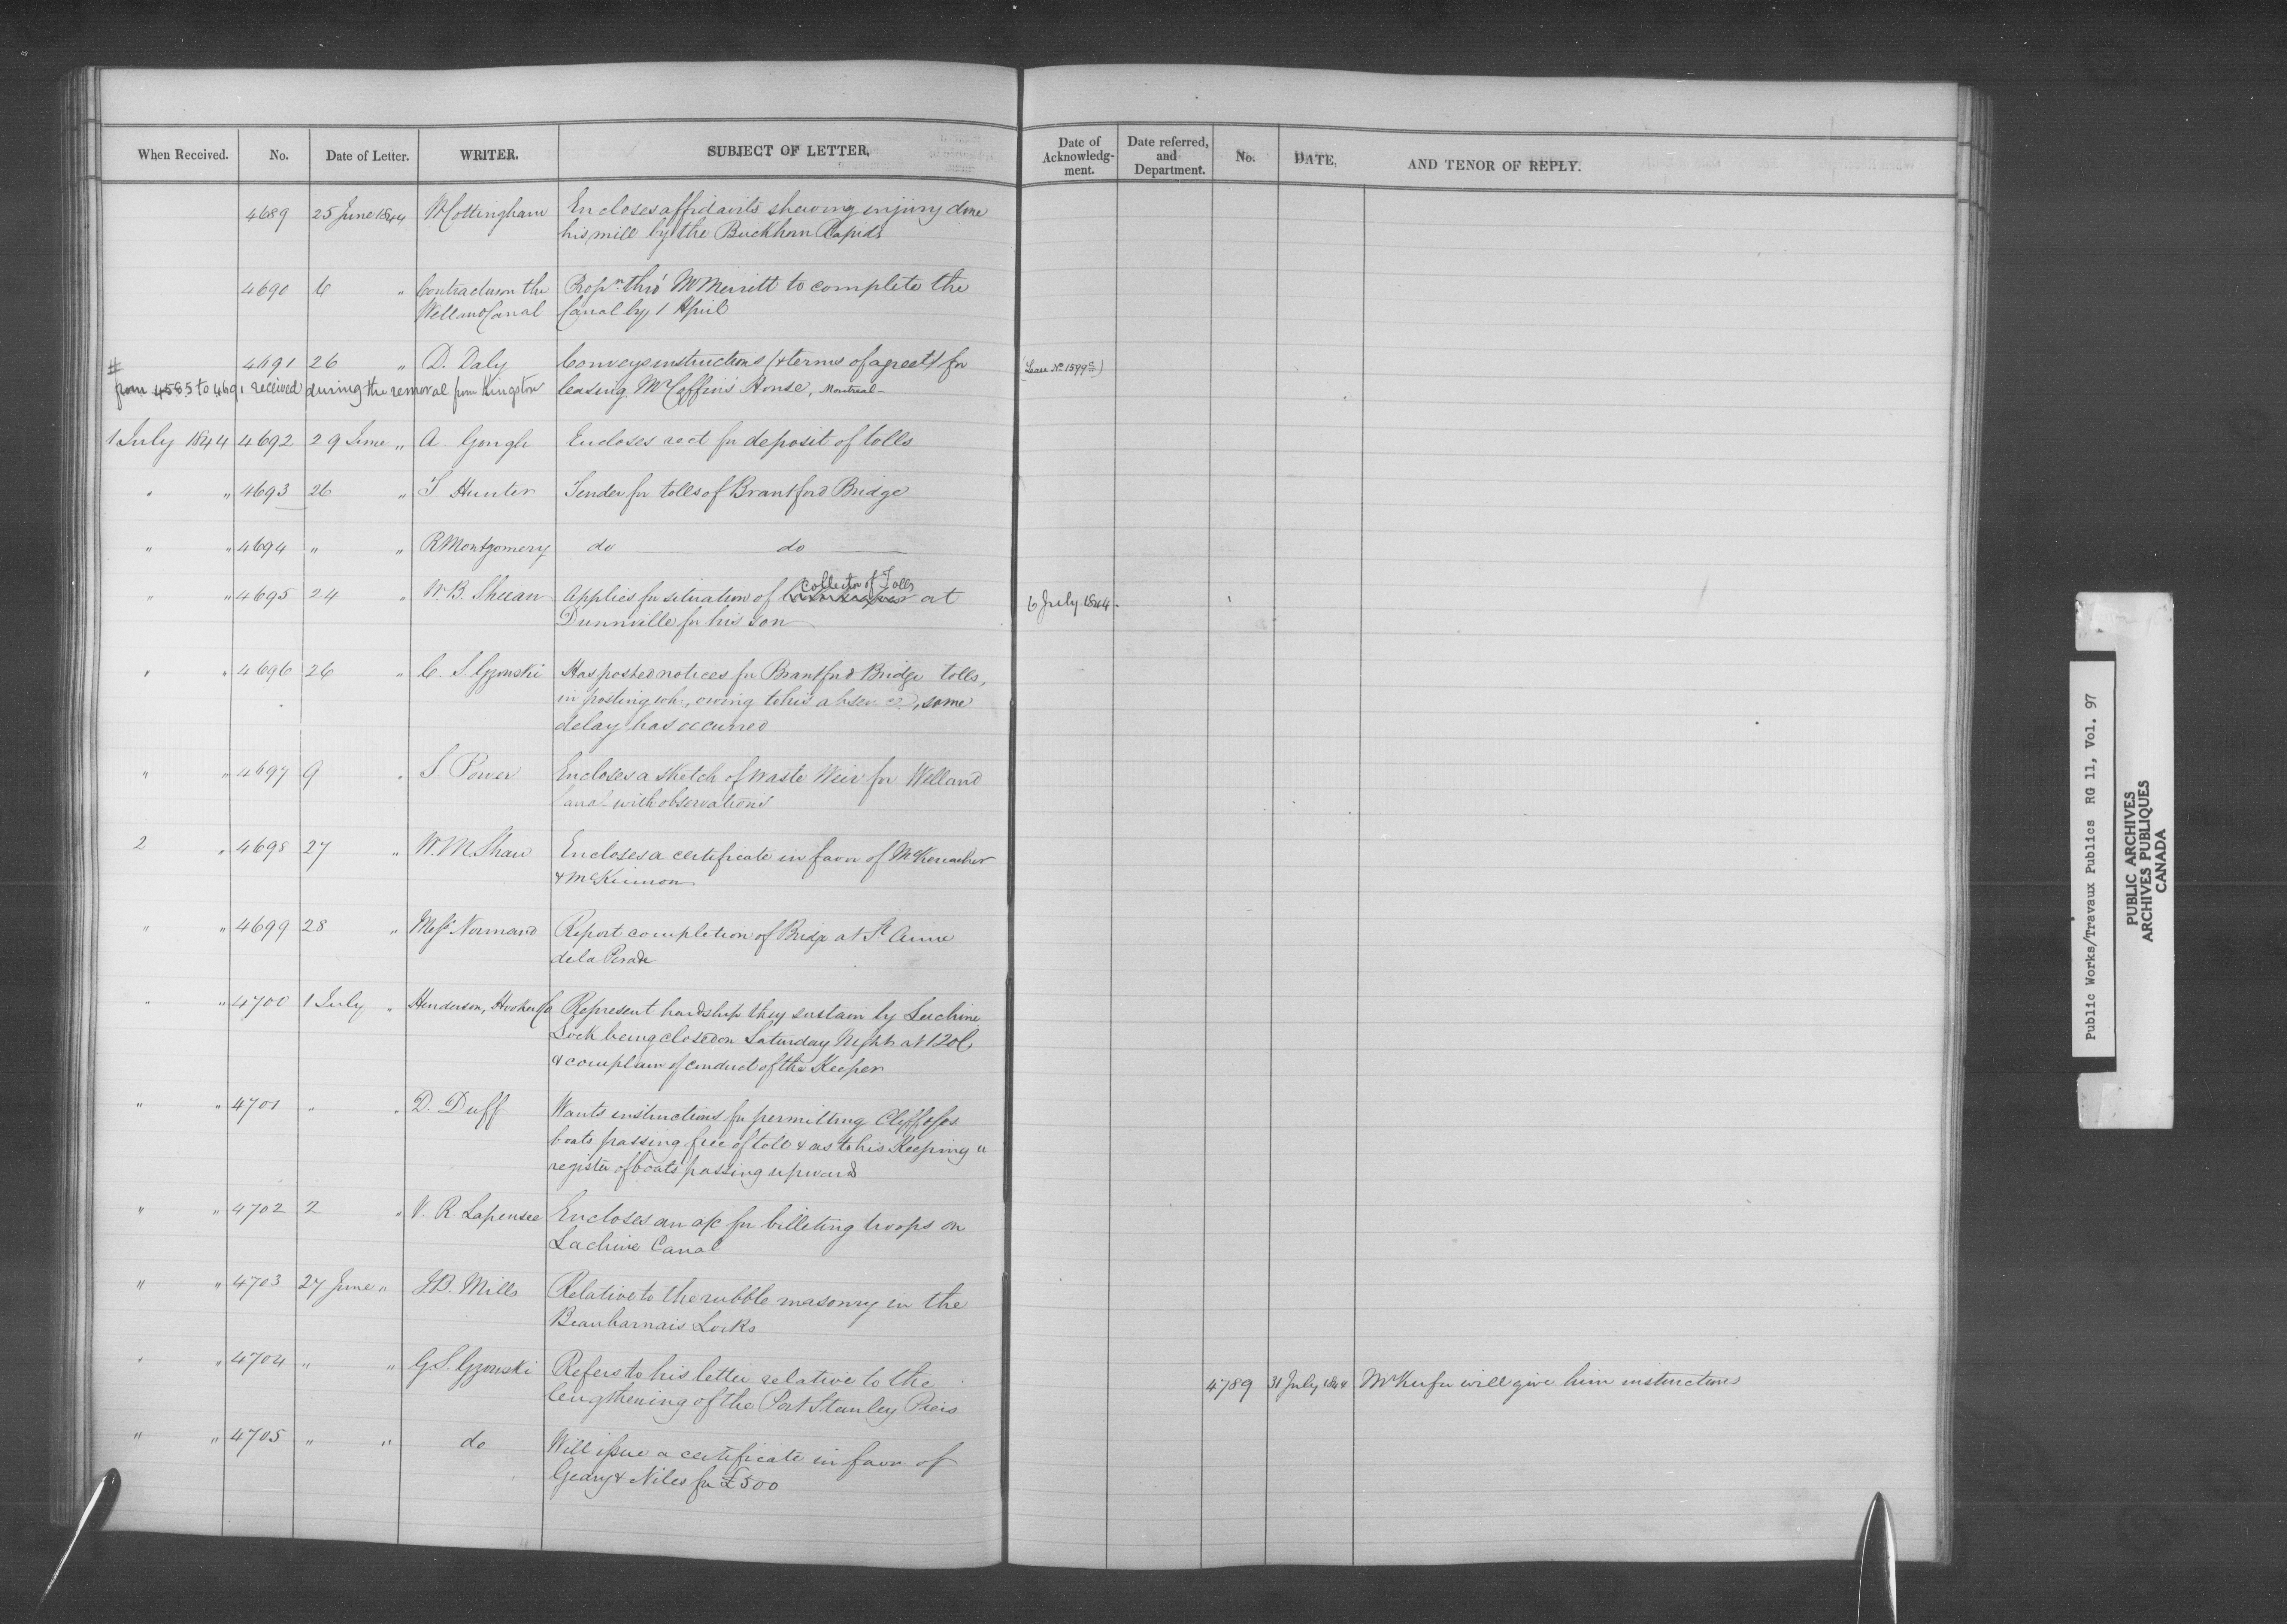 When Received. No. Date of Letter. WRITER. SUBJECT OF LETTER. Date of Acknowledg-ment. Date referred, and Department. No. DATE, AND TENOR OF REPLY.
4689 25 June 1844 W Cottingham Encloses affidavits shewing injury done
his mill by the Buckhorn Rapids
4690 6 " Contractors on the Propn. thro' Mr Merritt to complete the
Welland Canal Canal by 1 April
# 4691 26 " D. Daly Conveys instructions (& terms of agreet) for (Lease No 1599)
from 4585 to 4691 received during the removal from Kingston leasing Mr Coffin's House, Montreal -
1 July 1844 4692 29 June " A. Gough Encloses rect for deposit of tolls
" " 4693 26 " T Hunter Tender for tolls of Brantford Bridge
" " 4694 " " R Montgomery do do
" " 4695 24 " W. B. Sheean Applies for situation of Collector of Tolls at 6 July 1844.
Dunnville for his son
" " 4696 26 " C. S. Gzowski Has posted notices for Brantford Bridge tolls,
in posting wh, owing to his absence, some
delay has occurred
" " 4697 9 " S Power Encloses a sketch of waste Weir for Welland
Canal with observations
2 " 4698 27 " W. M. Shaw Encloses a certificate in favor of McKerracher
& McKinnon
" " 4699 28 " Messrs Normand Report completion of Bridge at St Anne
de la Perade
" " 4700 1 July " Henderson, Hooker & Co Represent hardship they sustain by Lachine
Lock being closed on Saturday Night at 12 oC,
& complain of conduct of the Keeper
" " 4701 " " D. Duff Wants instructions for permitting
boats passing free of toll & as to his Keeping a
register of boats passing upward
" " 4702 2 " V. R. Lapensee Encloses an a/c for billeting troops on
Lachine Canal
" " 4703 27 June " J B. Mills Relative to the rubble masonry in the
Beauharnais Locks
" " 4704 " " G S. Gzowski Refers to his letter relative to the
lengthening of the Port Stanley Piers 4789 31 July 1844 Mr Keefer will give him instructions
" " 4705 " " do Will issue a certificate in favor of
Geary & Niles for £500
Public Works/Travaux Publics RG 11, Vol. 97
PUBLIC ARCHIVES
ARCHIVES PUBLIQUES
CANADA